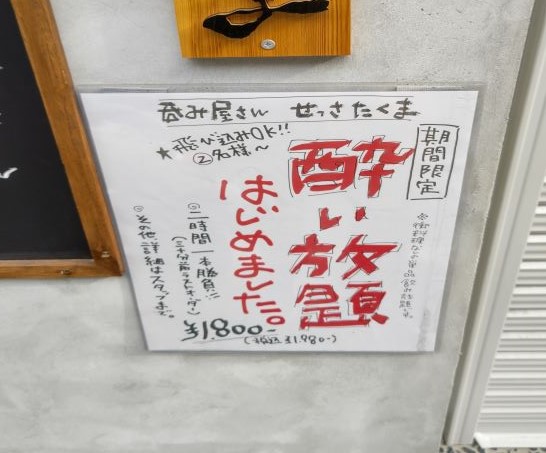 呑み屋さん せっさたくま
期間限定
酔い放題
はじめました。
★飛び込みOK!!
②名様〜
◎二時間一本勝負!!
(三十分前ラストオーダー)
¥1,800-
(税込¥1,980-)
◎その他詳細はスタッフまで。